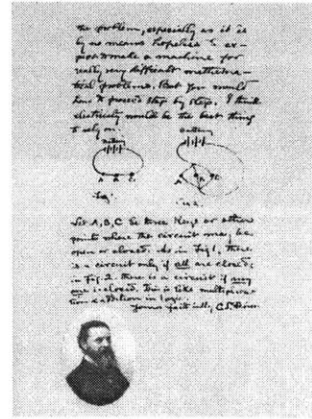 the problem, especially as it is
by no means hopeless to ex-
pect to make a machine for
really very difficult mathema-
tical problems. But you would
have to proceed step by step. I think
electricity would be the best thing
to rely on.
battery battery
A B C A B C
Fig. 1 Fig. 2
Let A, B, C be three keys or other
points where the circuit may be
open or closed. As in Fig 1, there
is a circuit only if all are closed;
in Fig. 2. there is a circuit if any
one is closed. This is like multiplica-
tion & addition in logic.
Yours faithfully, C.S. Peirce